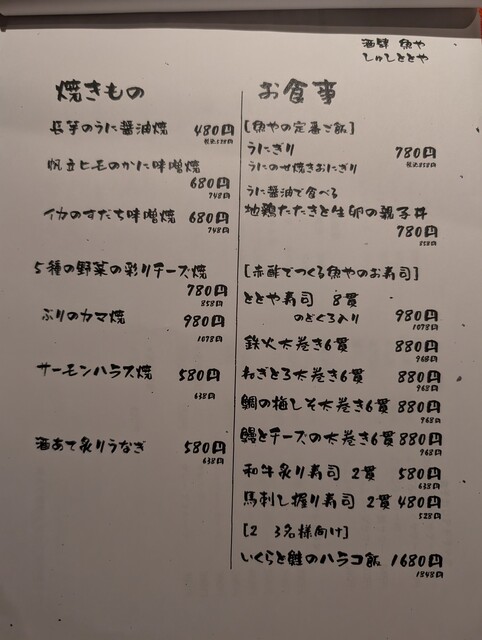 酒肆 魚や
しゅしととや
焼きもの
長芋のうに醤油焼 480円
税込528円
帆立ヒモのかに味噌焼
680円
748円
イカのすだち味噌焼 680円
748円
5種の野菜の彩りチーズ焼
780円
858円
ぶりのカマ焼 980円
1078円
サーモンハラス焼 580円
638円
酒あて炙りうなぎ 580円
638円
お食事
[魚やの定番ご飯]
うにぎり 780円
税込858円
うにのせ焼きおにぎり
うに醤油で食べる
地鶏たたきと生卵の親子丼
780円
858円
[赤酢でつくる魚やのお寿司]
ととや寿司 8貫
のどぐろ入り 980円
1078円
鉄火太巻き6貫 880円
968円
ねぎとろ太巻き6貫 880円
968円
鯛の梅しそ太巻き6貫 880円
968円
鰻とチーズの太巻き6貫 880円
968円
和牛炙り寿司 2貫 580円
638円
馬刺し握り寿司 2貫 480円
528円
[2 3名様向け]
いくらと鮭のハラコ飯 1680円
1848円